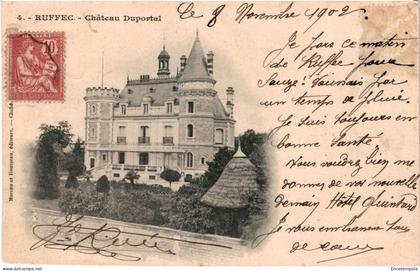 4. - RUFFEC. - Château Duportal
10
Moreau et Rousseau, éditeurs,
le 8 Novembre 1902.
Je pars ce matin
de Ruffec pour
Sauzé! J'aurais par
un temps de pluie.
Je suis toujours en
bonne santé.
Vous voudrez bien me
donner de vos nouvelles
demain Hôtel
Je vous embrasse tous
de cœur